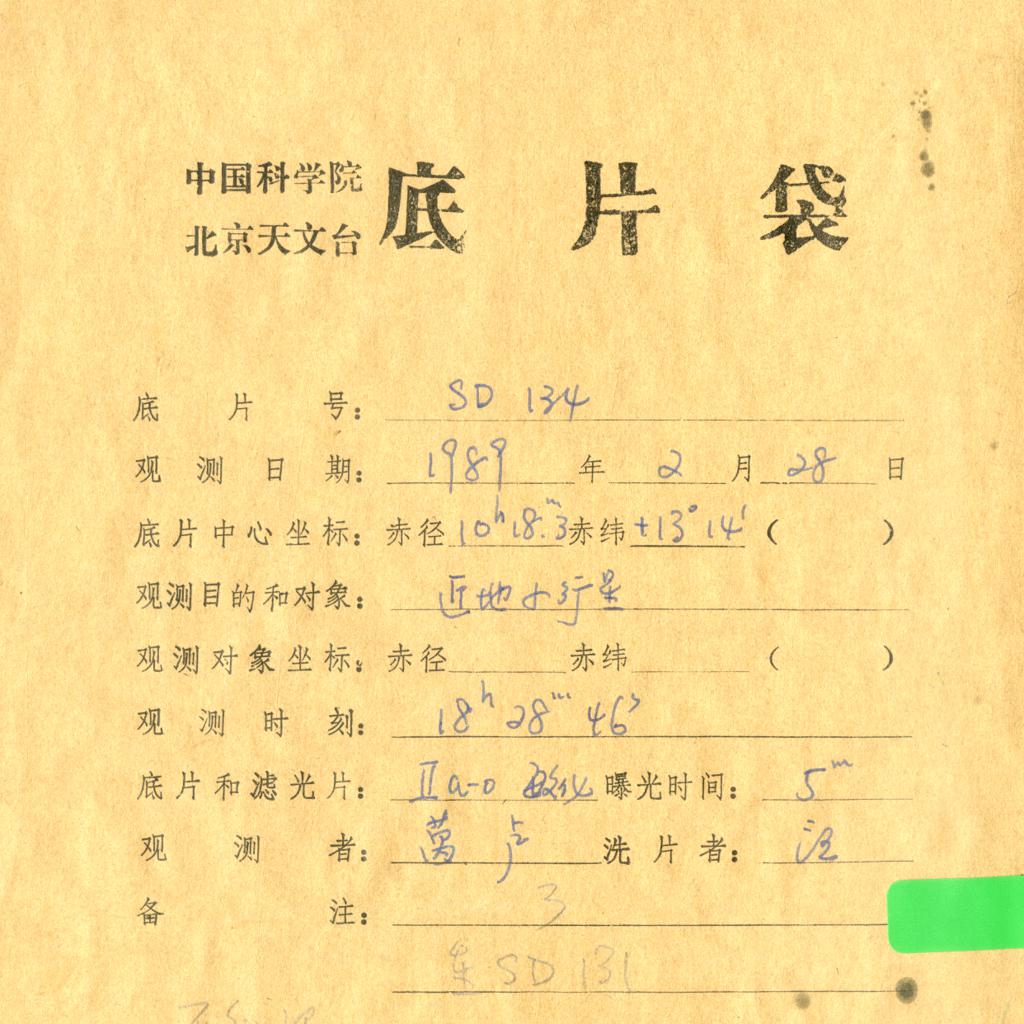 中国科学院
北京天文台
底片袋
底片号: SD 134
观测日期: 1989 年 2 月 28 日
底片中心坐标: 赤径 10ʰ18ᵐ.3 赤纬 +13°14′ ( )
观测目的和对象: 近地小行星
观测对象坐标: 赤径 赤纬 ( )
观测时刻: 18ʰ 28ᵐ 46ˢ
底片和滤光片: IIa-O 敏化 曝光时间: 5ᵐ
观测者: 卢 洗片者: 汪
备注: 3
SD 131